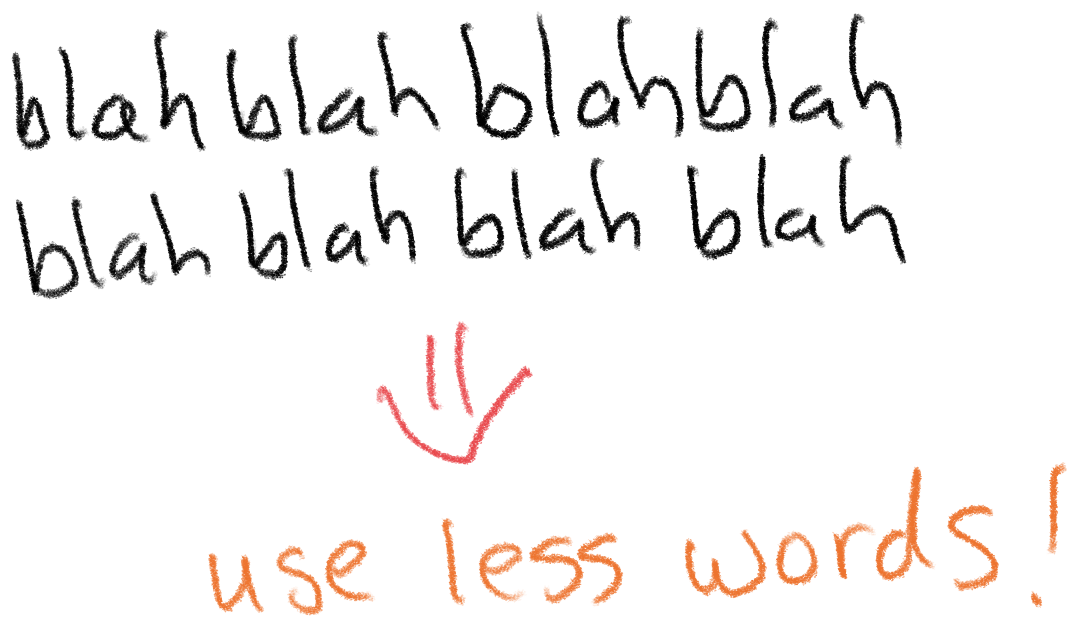 blah blah blah blah
blah blah blah blah
use less words!